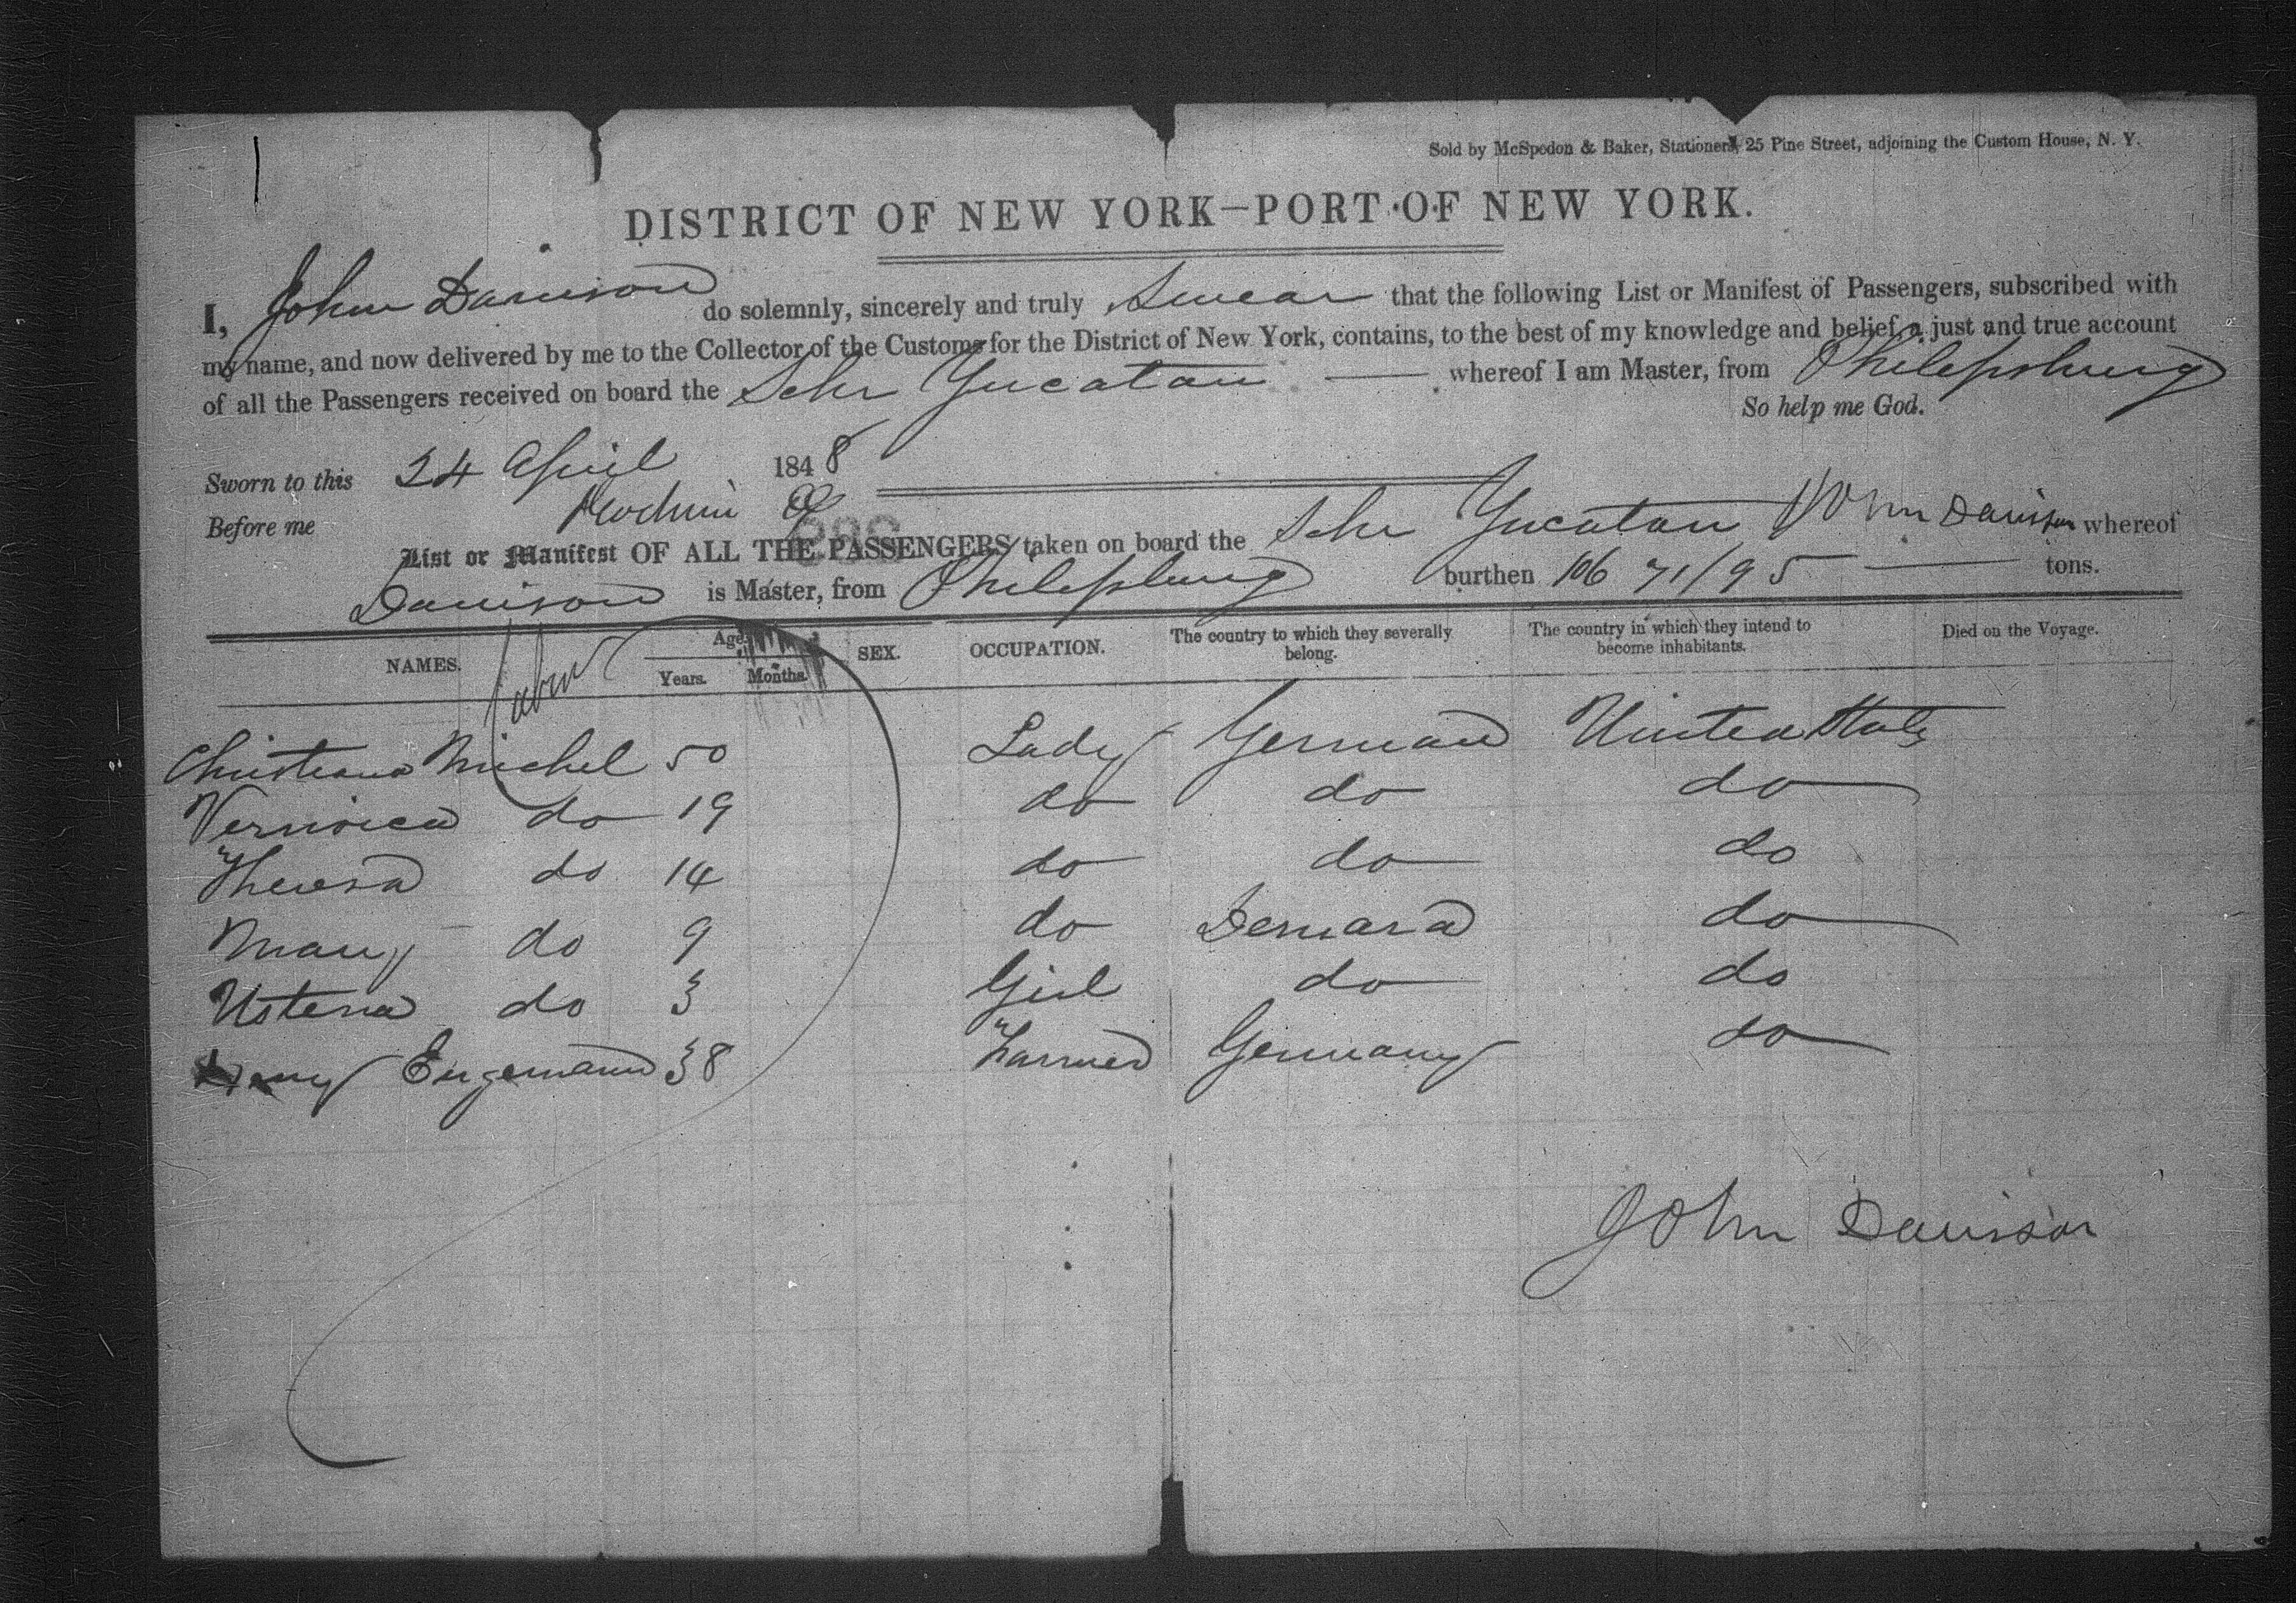 Sold by McSpedon & Baker, Stationers, 25 Pine Street, adjoining the Custom House, N. Y.
DISTRICT OF NEW YORK—PORT OF NEW YORK.
I, John Davison do solemnly, sincerely and truly Swear that the following List or Manifest of Passengers, subscribed with
my name, and now delivered by me to the Collector of the Customs for the District of New York, contains, to the best of my knowledge and belief, a just and true account
of all the Passengers received on board the Schr Yucatan whereof I am Master, from Philepsburg
So help me God.
Sworn to this 24 April 1848
Before me
John Davison
List or Manifest OF ALL THE PASSENGERS taken on board the Schr Yucatan whereof
Davison is Master, from Philepsburg burthen 106 71/95 tons.
NAMES. Age. Years. Months. SEX. OCCUPATION. The country to which they severally belong. The country in which they intend to become inhabitants. Died on the Voyage.
Cabin
Christiana Michel 50 Lady German United States
Vernoica do 19 do do do
Theresa do 14 do do do
Mary do 9 do Demara do
Ustena do 3 Girl do do
Engemann 38 Farmer Germany do
John Davison